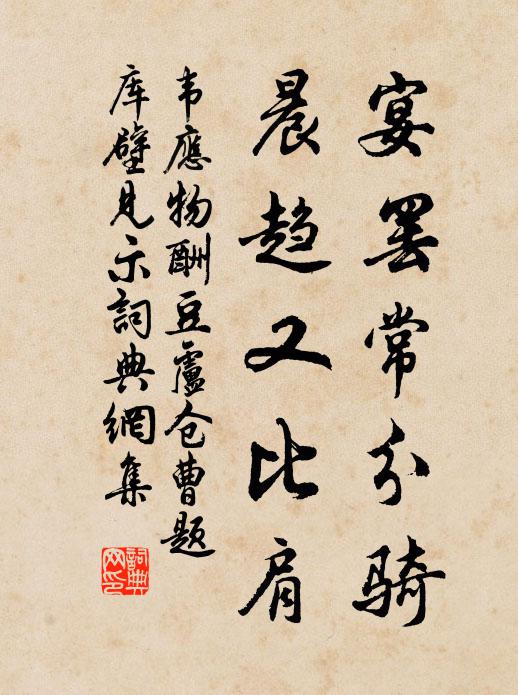 宴罢常分骑
晨趋又比肩
韦應物酬豆盧仓曹题
库壁见示詞典網集
詞典网印